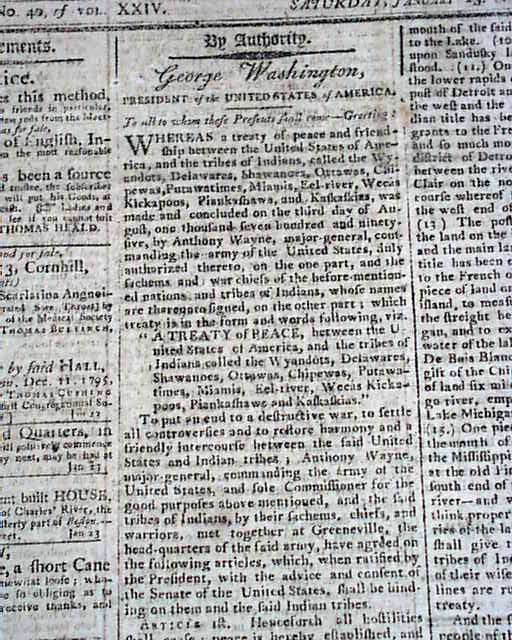 No. 40, of VOL. XXIV.
SATURDAY, JANUARY 23,
ements.
ice.
es this method,
of English, In-
n the most reasonable
s been a source
d trustee, the subscriber
will put his Goods, at
THOMAS HEALD.
and for sale,
53, Cornhill,
Scarlatina Angnoi-
of the Medical Society
by said HALL,
on. Dec. 11, 1795.
Jan 23
d Quarters, in
will positively commence
Jan 23
nt built HOUSE,
of Charles' River, the
sterly part of Boston.—
Jan 23
e, a short Cane
so obliging as to
receive thanks, and
By Authority.
George Washington,
PRESIDENT of the UNITED STATES of AMERICA.
To all to whom these Presents shall come—Greeting:
WHEREAS a treaty of peace and friend-
ship between the United States of Ame-
rica, and the tribes of Indians, called the Wy-
endots, Delawares, Shawanoes, Ottawas, Chi-
pewas, Putawatimes, Miamis, Eel-river, Weeas
Kickapoos, Piankashaws, and Kaskaskias, was
made and concluded on the third day of Au-
gust, one thousand seven hundred and ninety-
five, by Anthony Wayne, major-general, com-
manding the army of the United States, duly
authorized thereto, on the one part, and the
sachems and war chiefs of the before-mention-
ed nations and tribes of Indians, whose names
are thereunto signed, on the other part; which
treaty is in the form and words following, viz.
"A TREATY of PEACE, between the U-
nited States of America, and the tribes of
Indians called the Wyandots, Delawares,
Shawanoes, Ottawas, Chipewas, Putawa-
times, Miamis, Eel-river, Weeas Kicka-
poos, Piankashaws and Kaskaskias."
To put an end to a destructive war, to settle
all controversies and to restore harmony and a
friendly intercourse between the said United
States and Indian tribes; Anthony Wayne,
major-general, commanding the army of the
United States, and sole Commissioner for the
good purposes above mentioned, and the said
tribes of Indians, by their sachems, chiefs, and
warriors, met together at Greeneville, the
head-quarters of the said army, have agreed on
the following articles, which, when ratified by
the President, with the advice and consent of
the Senate of the United States, shall be bind-
ing on them and the said Indian tribes.
ARTICLE 1st. Henceforth all hostilities
shall cease; peace is hereby established, and
mouth of the said
to the Lake. (10
upon Sandusky L
stood. (11.) On
the lower rapids
post of Detroit an
the west and the
dian title has be
grants to the Fre
and so much mo
district of Detro
between the rive
Clair on the no
course whereof
the west end of
(13) The post
the land on the
and the main la
title has been e
to the French o
piece of land o
island, to meas
the streight be
gan, and to ex
water of the lak
De Bois Blanc
gift of the Chi
of land six mile
go river, emp
Lake Michigan
(15.) One piec
the mouth of
the Mississippi
at the old Pi
south end of
river—and w
think proper
ries of the la
shall give t
tribes of Ind
of their wise
lines are ru
treaty.
And the